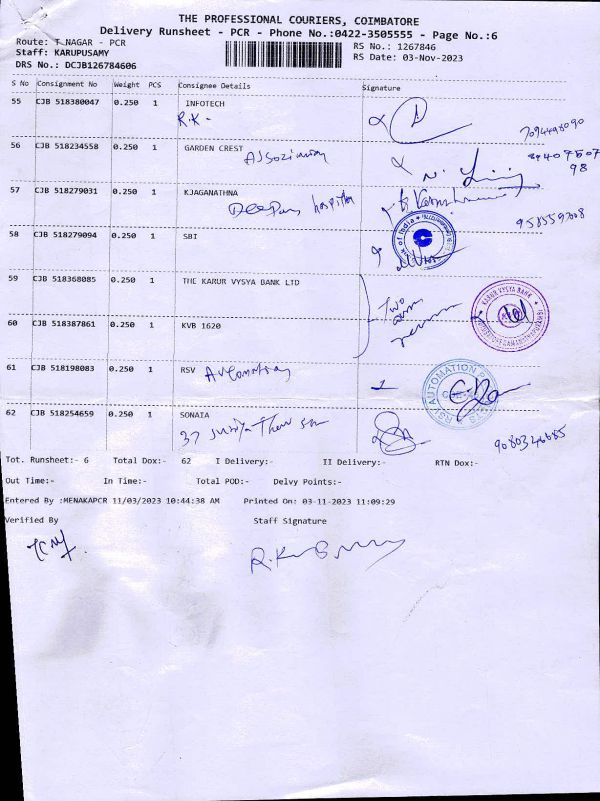 THE PROFESSIONAL COURIERS, COIMBATORE
Delivery Runsheet - PCR - Phone No.:0422-3505555 - Page No.:6
Route: T_NAGAR - PCR
Staff: KARUPUSAMY
DRS No.: DCJB126784606
RS No.: 1267846
RS Date: 03-Nov-2023
S No Consignment No Weight PCS Consignee Details Signature
55 CJB 518380047 0.250 1 INFOTECH
R.K -
56 CJB 518234558 0.250 1 GARDEN CREST
57 CJB 518279031 0.250 1 KJAGANATHNA
hospital
58 CJB 518279094 0.250 1 SBI
59 CJB 518368085 0.250 1 THE KARUR VYSYA BANK LTD
Two
60 CJB 518387861 0.250 1 KVB 1620
KARUR VYSYA BANK
61 CJB 518198083 0.250 1 RSV
RSV AUTOMATION
62 CJB 518254659 0.250 1 SONATA
37
Tot. Runsheet:- 6 Total Dox:- 62 I Delivery:- II Delivery:- RTN Dox:-
Out Time:- In Time:- Total POD:- Delvy Points:-
Entered By :MENAKAPCR 11/03/2023 10:44:38 AM Printed On: 03-11-2023 11:09:29
Verified By Staff Signature